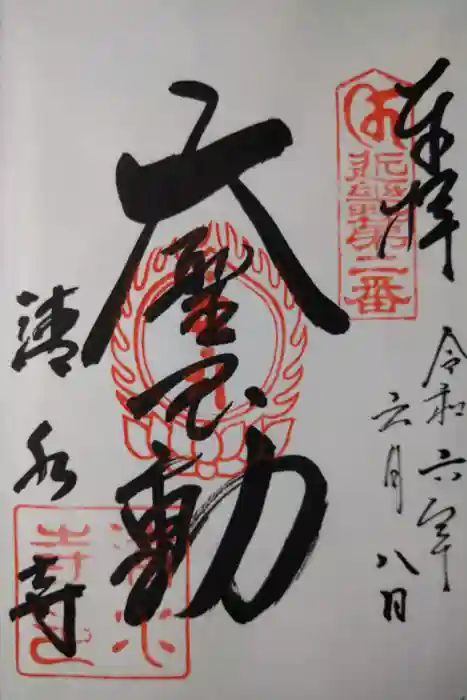 奉拝
令和六年
六月八日
第二番
大聖不動
清水寺